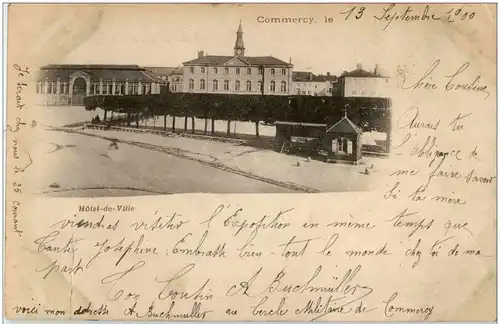 Commercy, le 13 Septembre 1900
Chère Cousine,
Aurais tu
l'obligeance de
me faire savoir
Si ta mère
Hôtel-de-Ville
viendras visiter l'Exposition en même temps que
Tante Joséphine. Embrasse bien tout le monde chez toi de ma
part
Ton Cousin A Buchmüller
voici mon adresse A Buchmüller au Cercle Militaire de Commercy
Je serai chez nous le 25 courant